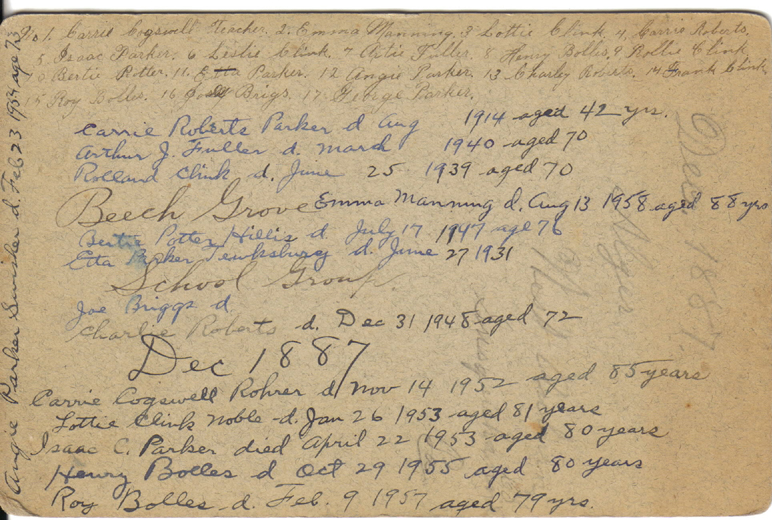 No 1. Carrie Cogswell Teacher. 2. Emma Manning. 3 Lottie Clink. 4. Carrie Roberts.
5 Isaac Parker. 6 Leslie Clink. 7 Artie Fuller. 8 Henry Bolles. 9 Rollie Clink.
10 Bertie Potter. 11 Etta Parker. 12 Angie Parker. 13 Charley Roberts. 14 Frank Clink.
15 Roy Bolles. 16 Joe Brigs. 17 George Parker.
Carrie Roberts Parker d Aug 1914 aged 42 yrs.
Arthur J. Fuller d. March 1940 aged 70
Rolland Clink d. June 25 1939 aged 70
Beech Grove
Emma Manning d. Aug 13 1958 aged 88 yrs
Bertie Potter Hillis d. July 17 1947 age 76
Etta Parker Tewksbury d. June 27 1931
School Group.
Joe Briggs d
Charlie Roberts d. Dec 31 1948 aged 72
Dec 1887
Carrie Cogswell Rohrer d Nov 14 1952 aged 85 years
Lottie Clink Noble d. Jan 26 1953 aged 81 years
Isaac C. Parker died April 22 1953 aged 80 years
Henry Bolles d Oct 29 1955 aged 80 years
Roy Bolles d. Feb. 9 1957 aged 79 yrs.
Angie Parker Swisher d. Feb 23 1954 age 73
Dec 1887